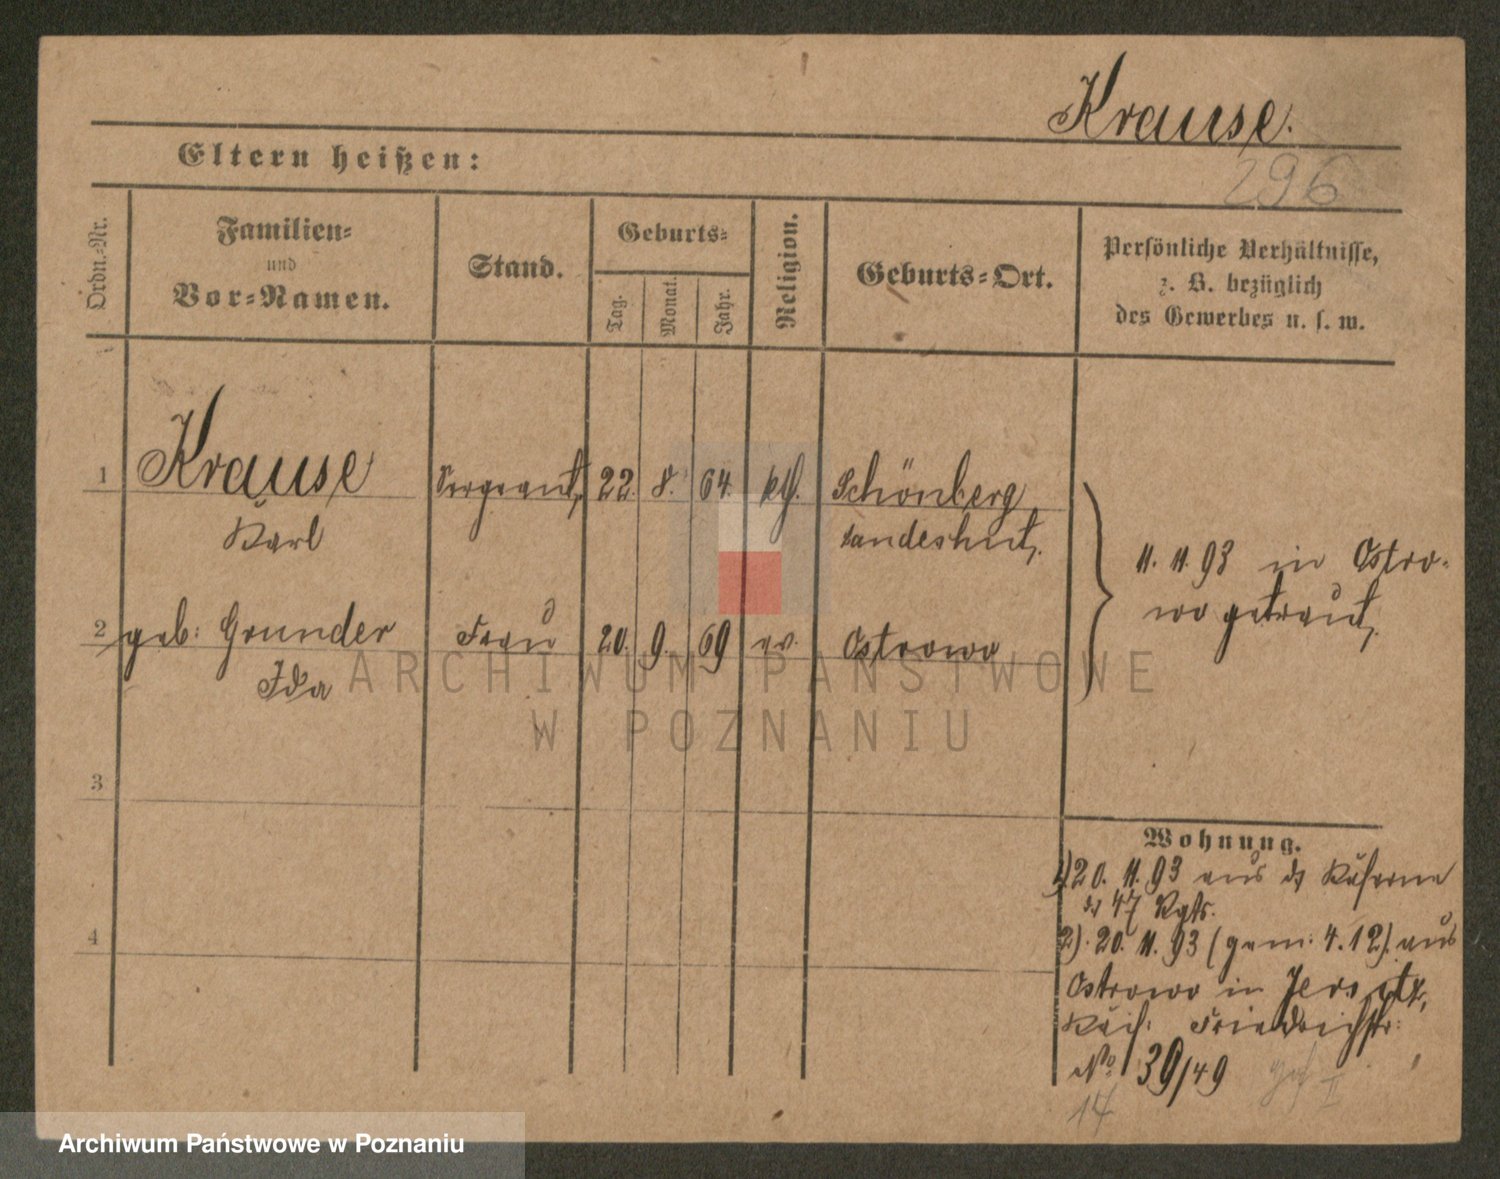 Krause.
296
Eltern heißen:
Ordn.-Nr.
Familien-
und
Vor-Namen.
Stand.
Geburts-
Tag.
Monat.
Jahr.
Religion.
Geburts-Ort.
Persönliche Verhältnisse,
z. B. bezüglich
des Gewerbes u. s. w.
1 Krause Sergeant 22. 8. 64. kth. Schönberg
Karl Landeshut.
11. 11. 93 in Ostro-
wo getraut.
2 geb: Grunder Frau 20. 9. 69 ev. Ostrowo
Ida
3
4
Wohnung.
1) 20. 11. 93 aus ds Kaserne
ds 47 Rgts.
2). 20. 11. 93 (gem: 4.12) aus
Ostrowo in Jersitz,
Friedrichstr:
No 39/49
14 II
ARCHIWUM PAŃSTWOWE
W POZNANIU
Archiwum Państwowe w Poznaniu